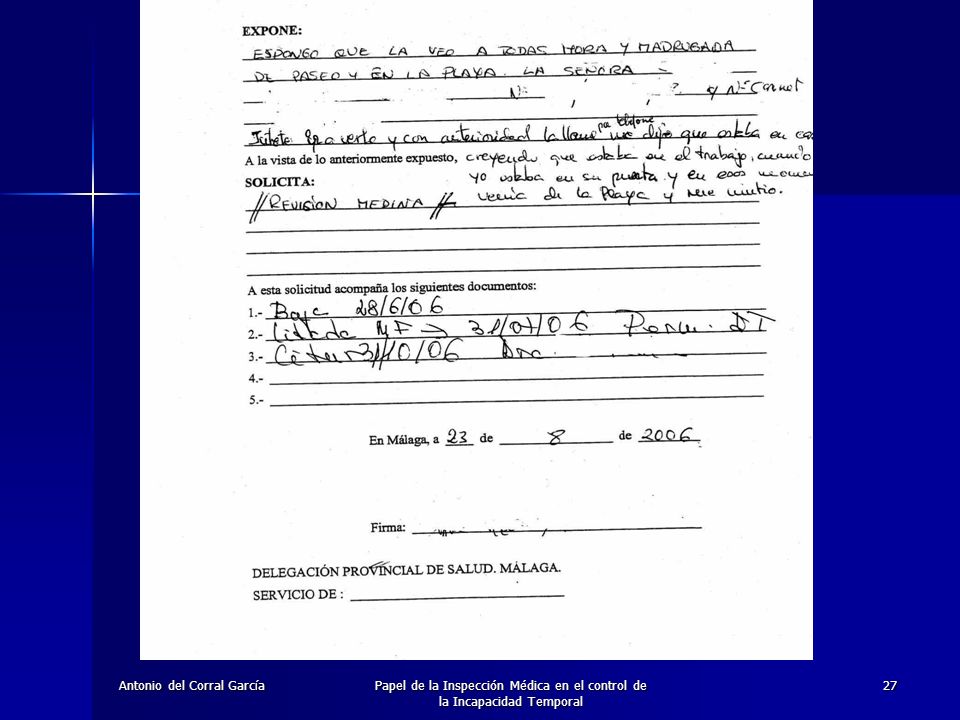 EXPONE:
ESPONGO QUE LA VEO A TODAS HORA Y MADRUGADA
DE PASEO Y EN LA PLAYA. LA SEÑORA
Nº , , y Nº Carnet
por telefono
y con anterioridad la llame me dijo que estaba en
A la vista de lo anteriormente expuesto, creyendo que estaba en el trabajo, cuando
yo estaba en su puerta y en esos
SOLICITA:
venia de la Playa y me mintio.
//REVISION MEDICA//
A esta solicitud acompaña los siguientes documentos:
1.- Baja 28/6/06
2.- 31/07/06
3.- 31/10/06
4.-
5.-
En Málaga, a 23 de 8 de 2006
Firma:
DELEGACIÓN PROVINCIAL DE SALUD. MÁLAGA.
SERVICIO DE :
Antonio del Corral García
Papel de la Inspección Médica en el control de
la Incapacidad Temporal
27